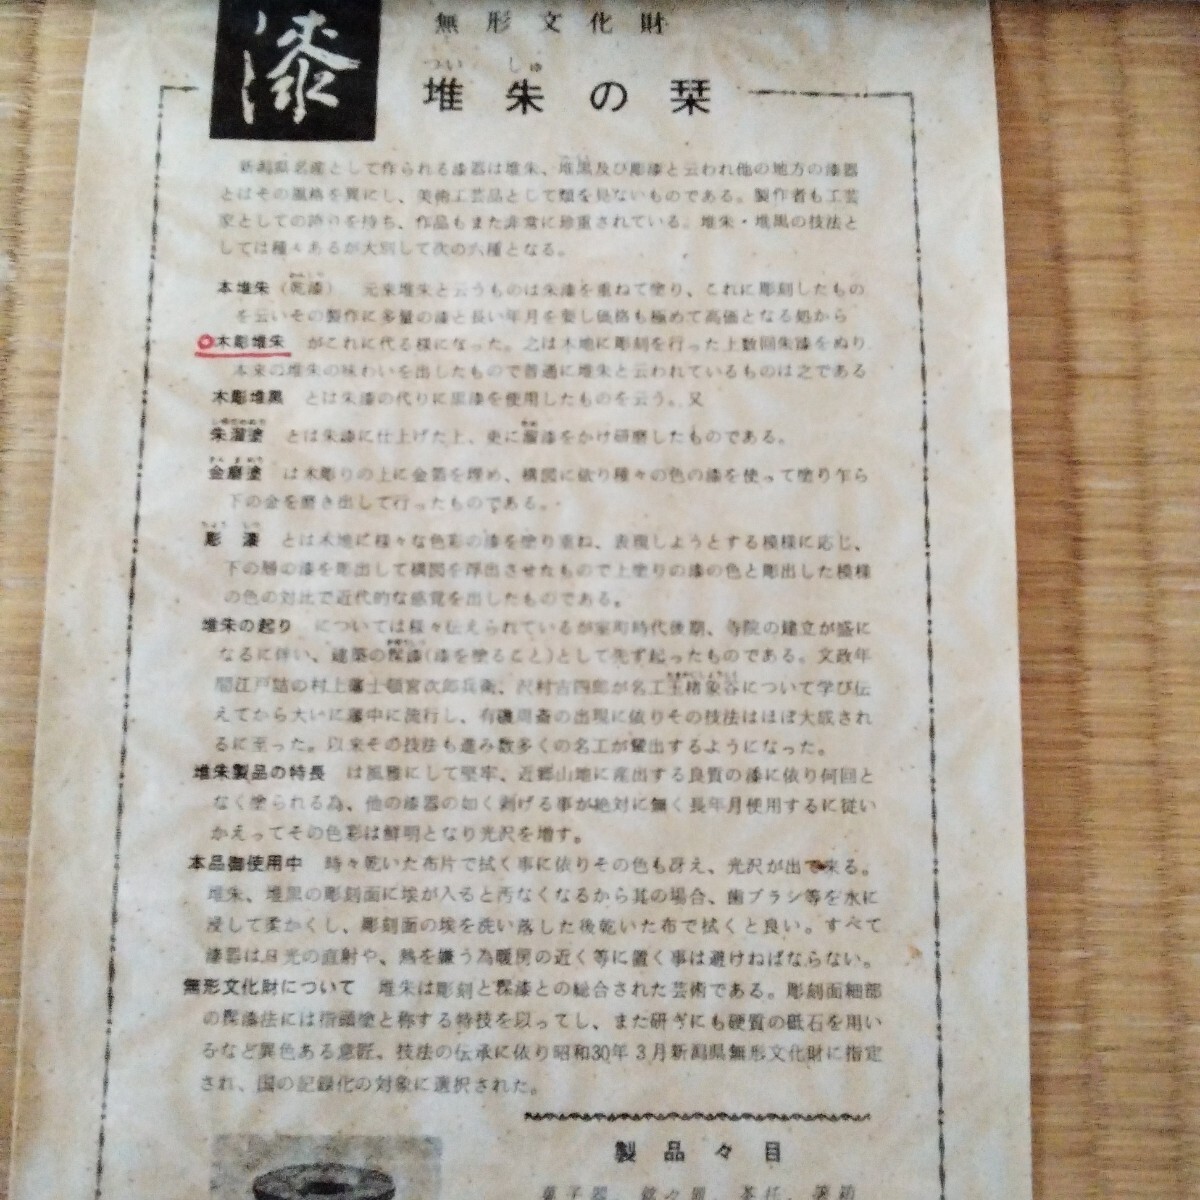 漆
無形文化財
つい しゅ
堆朱の栞
新潟県名産として作られる漆器は堆朱、堆黒及び彫漆と云われ他の地方の漆器
とはその風格を異にし、美術工芸品として類を見ないものである。製作者も工芸
家としての誇りを持ち、作品もまた非常に珍重されている。堆朱・堆黒の技法と
しては種々あるが大別して次の六種となる。
本堆朱(乾漆) 元来堆朱と云うものは朱漆を重ねて塗り、これに彫刻したもの
を云いその製作に多量の漆と長い年月を要し価格も極めて高価となる処から
木彫堆朱 がこれに代る様になった。之は木地に彫刻を行った上数回朱漆をぬり
本来の堆朱の味わいを出したもので普通に堆朱と云われているものは之である
木彫堆黒 とは朱漆の代りに黒漆を使用したものを云う。又
朱溜塗 とは朱漆に仕上げた上、更に溜漆をかけ研磨したものである。
金磨塗 は木彫りの上に金箔を埋め、構図に依り種々の色の漆を使って塗り乍ら
下の金を磨き出して行ったものである。
ちょう しつ
彫漆 とは木地に様々な色彩の漆を塗り重ね、表現しようとする模様に応じ、
下の層の漆を彫出して構図を浮出させたもので上塗りの漆の色と彫出した模様
の色の対比で近代的な感覚を出したものである。
堆朱の起り については様々伝えられているが室町時代後期、寺院の建立が盛に
なるに伴い、建築の髹漆(漆を塗ること)として先ず起ったものである。文政年
間江戸詰の村上藩士頓宮次郎兵衛、沢村吉四郎が名工玉楮象谷について学び伝
えてから大いに藩中に流行し、有磯周斎の出現に依りその技法はほぼ大成され
るに至った。以来その技法も進み数多くの名工が輩出するようになった。
堆朱製品の特長 は風雅にして堅牢、近郷山地に産出する良質の漆に依り何回と
なく塗られる為、他の漆器の如く剥げる事が絶対に無く長年月使用するに従い
かえってその色彩は鮮明となり光沢を増す。
本品御使用中 時々乾いた布片で拭く事に依りその色も冴え、光沢が出て来る。
堆朱、堆黒の彫刻面に埃が入ると汚なくなるから其の場合、歯ブラシ等を水に
浸して柔かくし、彫刻面の埃を洗い落した後乾いた布で拭くと良い。すべて
漆器は日光の直射や、熱を嫌う為暖房の近く等に置く事は避けねばならない。
無形文化財について 堆朱は彫刻と髹漆との総合された芸術である。彫刻面細部
の髹漆法には指頭塗と称する特技を以ってし、また研ぎにも硬質の砥石を用い
るなど異色ある意匠、技法の伝承に依り昭和30年3月新潟県無形文化財に指定
され、国の記録化の対象に選択された。
製品々目
菓子器、銘々皿、茶托、